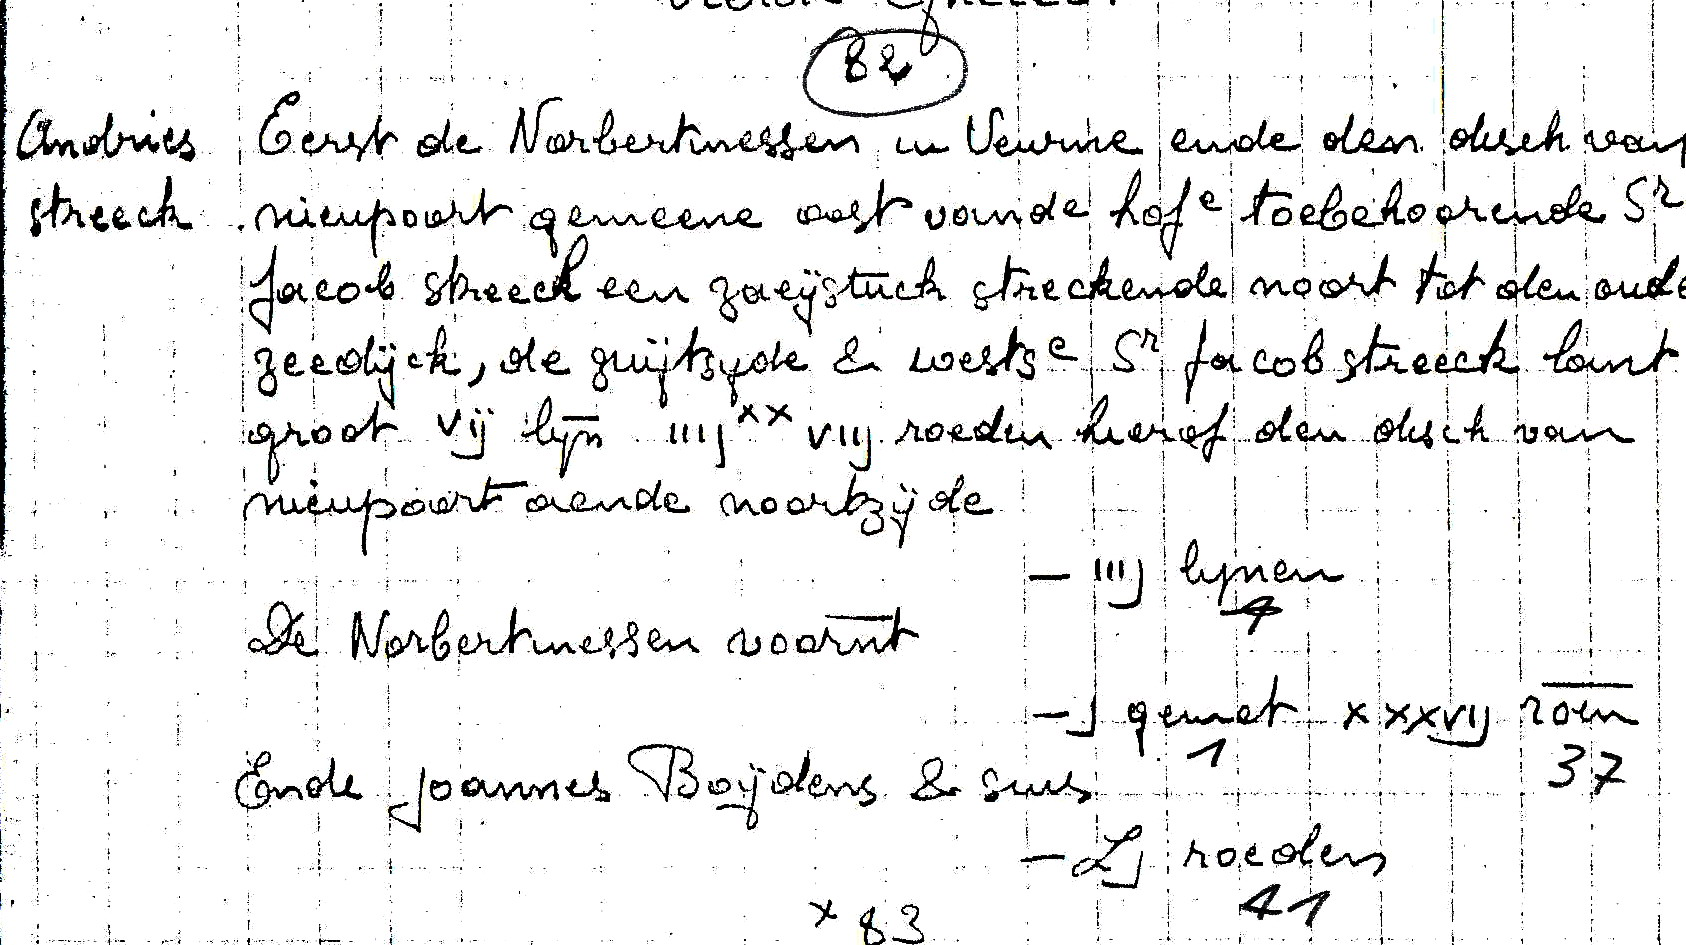 82
Andries Eerst de Norbertinessen in Veurne ende den disch van
streeck nieupoort gemeene oost vande hofᵉ toebehoorende Sʳ
Jacob streeck een zaeÿstuck streckende noort tot den oude
zeedÿck, de zuÿtsyde & westsᵉ Sʳ Jacob streeck lant
groot vÿ lȳn iiijˣˣ viij roeden hierof den disch van
nieupoort aende noortzÿde
- iiij lynen
4
De Norbertinessen voorn̄t
- j gemet xxxvij roēn
1 37
Ende Joannes Boÿdens & suis
- Lj roeden
41
x 83